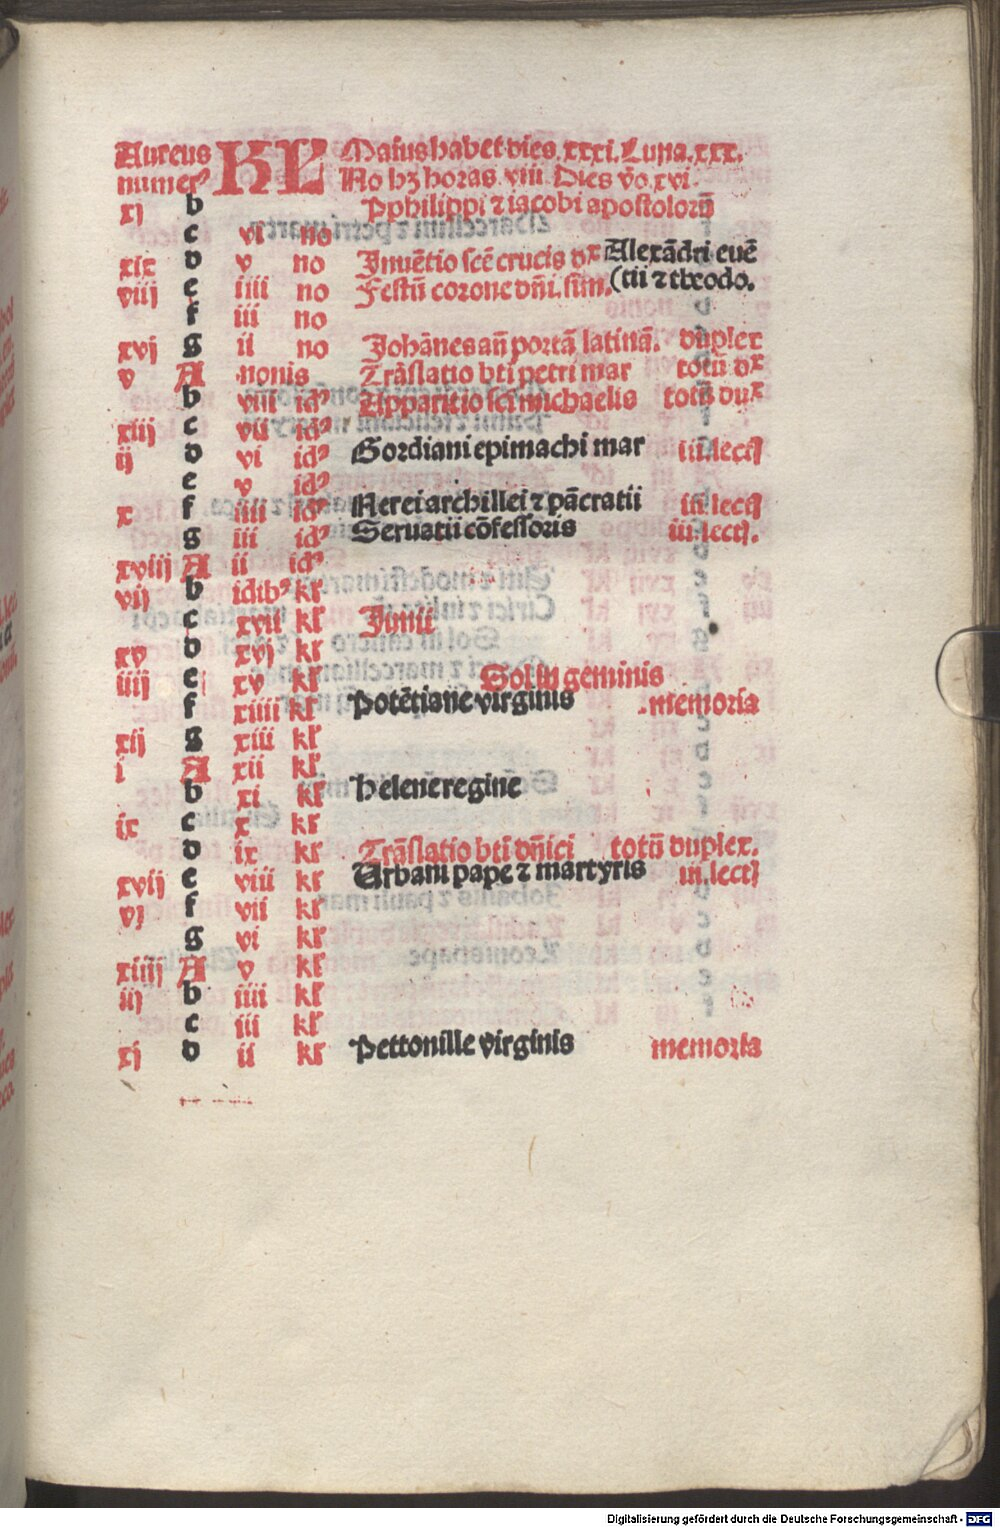 Aureus KL Maius habet dies. xxxi. Luna. xxx.
numerꝰ No hꝫ horas. viii. Dies vo. xvi.
xj b Pphilippi ⁊ iacobi apostolorū
c vi no
xix d v no Inuētio scē crucis dx Alexādri euē
viij e iiii no Festū corone dñi. sim. (tii ⁊ theodo.
f iii no
xvj g ii no Johānes añ portā latinā. duplex
v A nonis Trāslatio bti petri mar totū dx
b viii idꝰ Apparitio sci michaelis totū dux
xiij c vii idꝰ
ij d vi idꝰ Gordiani epimachi mar iii. lectj
e v idꝰ
x f iiii idꝰ Nerei archillei ⁊ pācratii iii. lectj
g iii idꝰ Seruatii cōfessoris iii. lectj.
xviij A ii idꝰ
vij b idibꝰ kl
c xvii kl Junii
xv d xvj kl
iiij e xv kl Sol in geminis
f xiiii kl Potētiane virginis memoria
xij g xiii kl
i A xii kl
b xi kl Helene regine
ix c x kl
d ix kl Trāslatio bti dñici totū duplex.
xvij e viii kl Urbani pape ⁊ martyris iii. lectj
vj f vii kl
g vi kl
xiiij A v kl
iij b iiii kl
c iii kl
xj d ii kl Pettonille virginis memoria
Digitalisierung gefördert durch die Deutsche Forschungsgemeinschaft - DFG